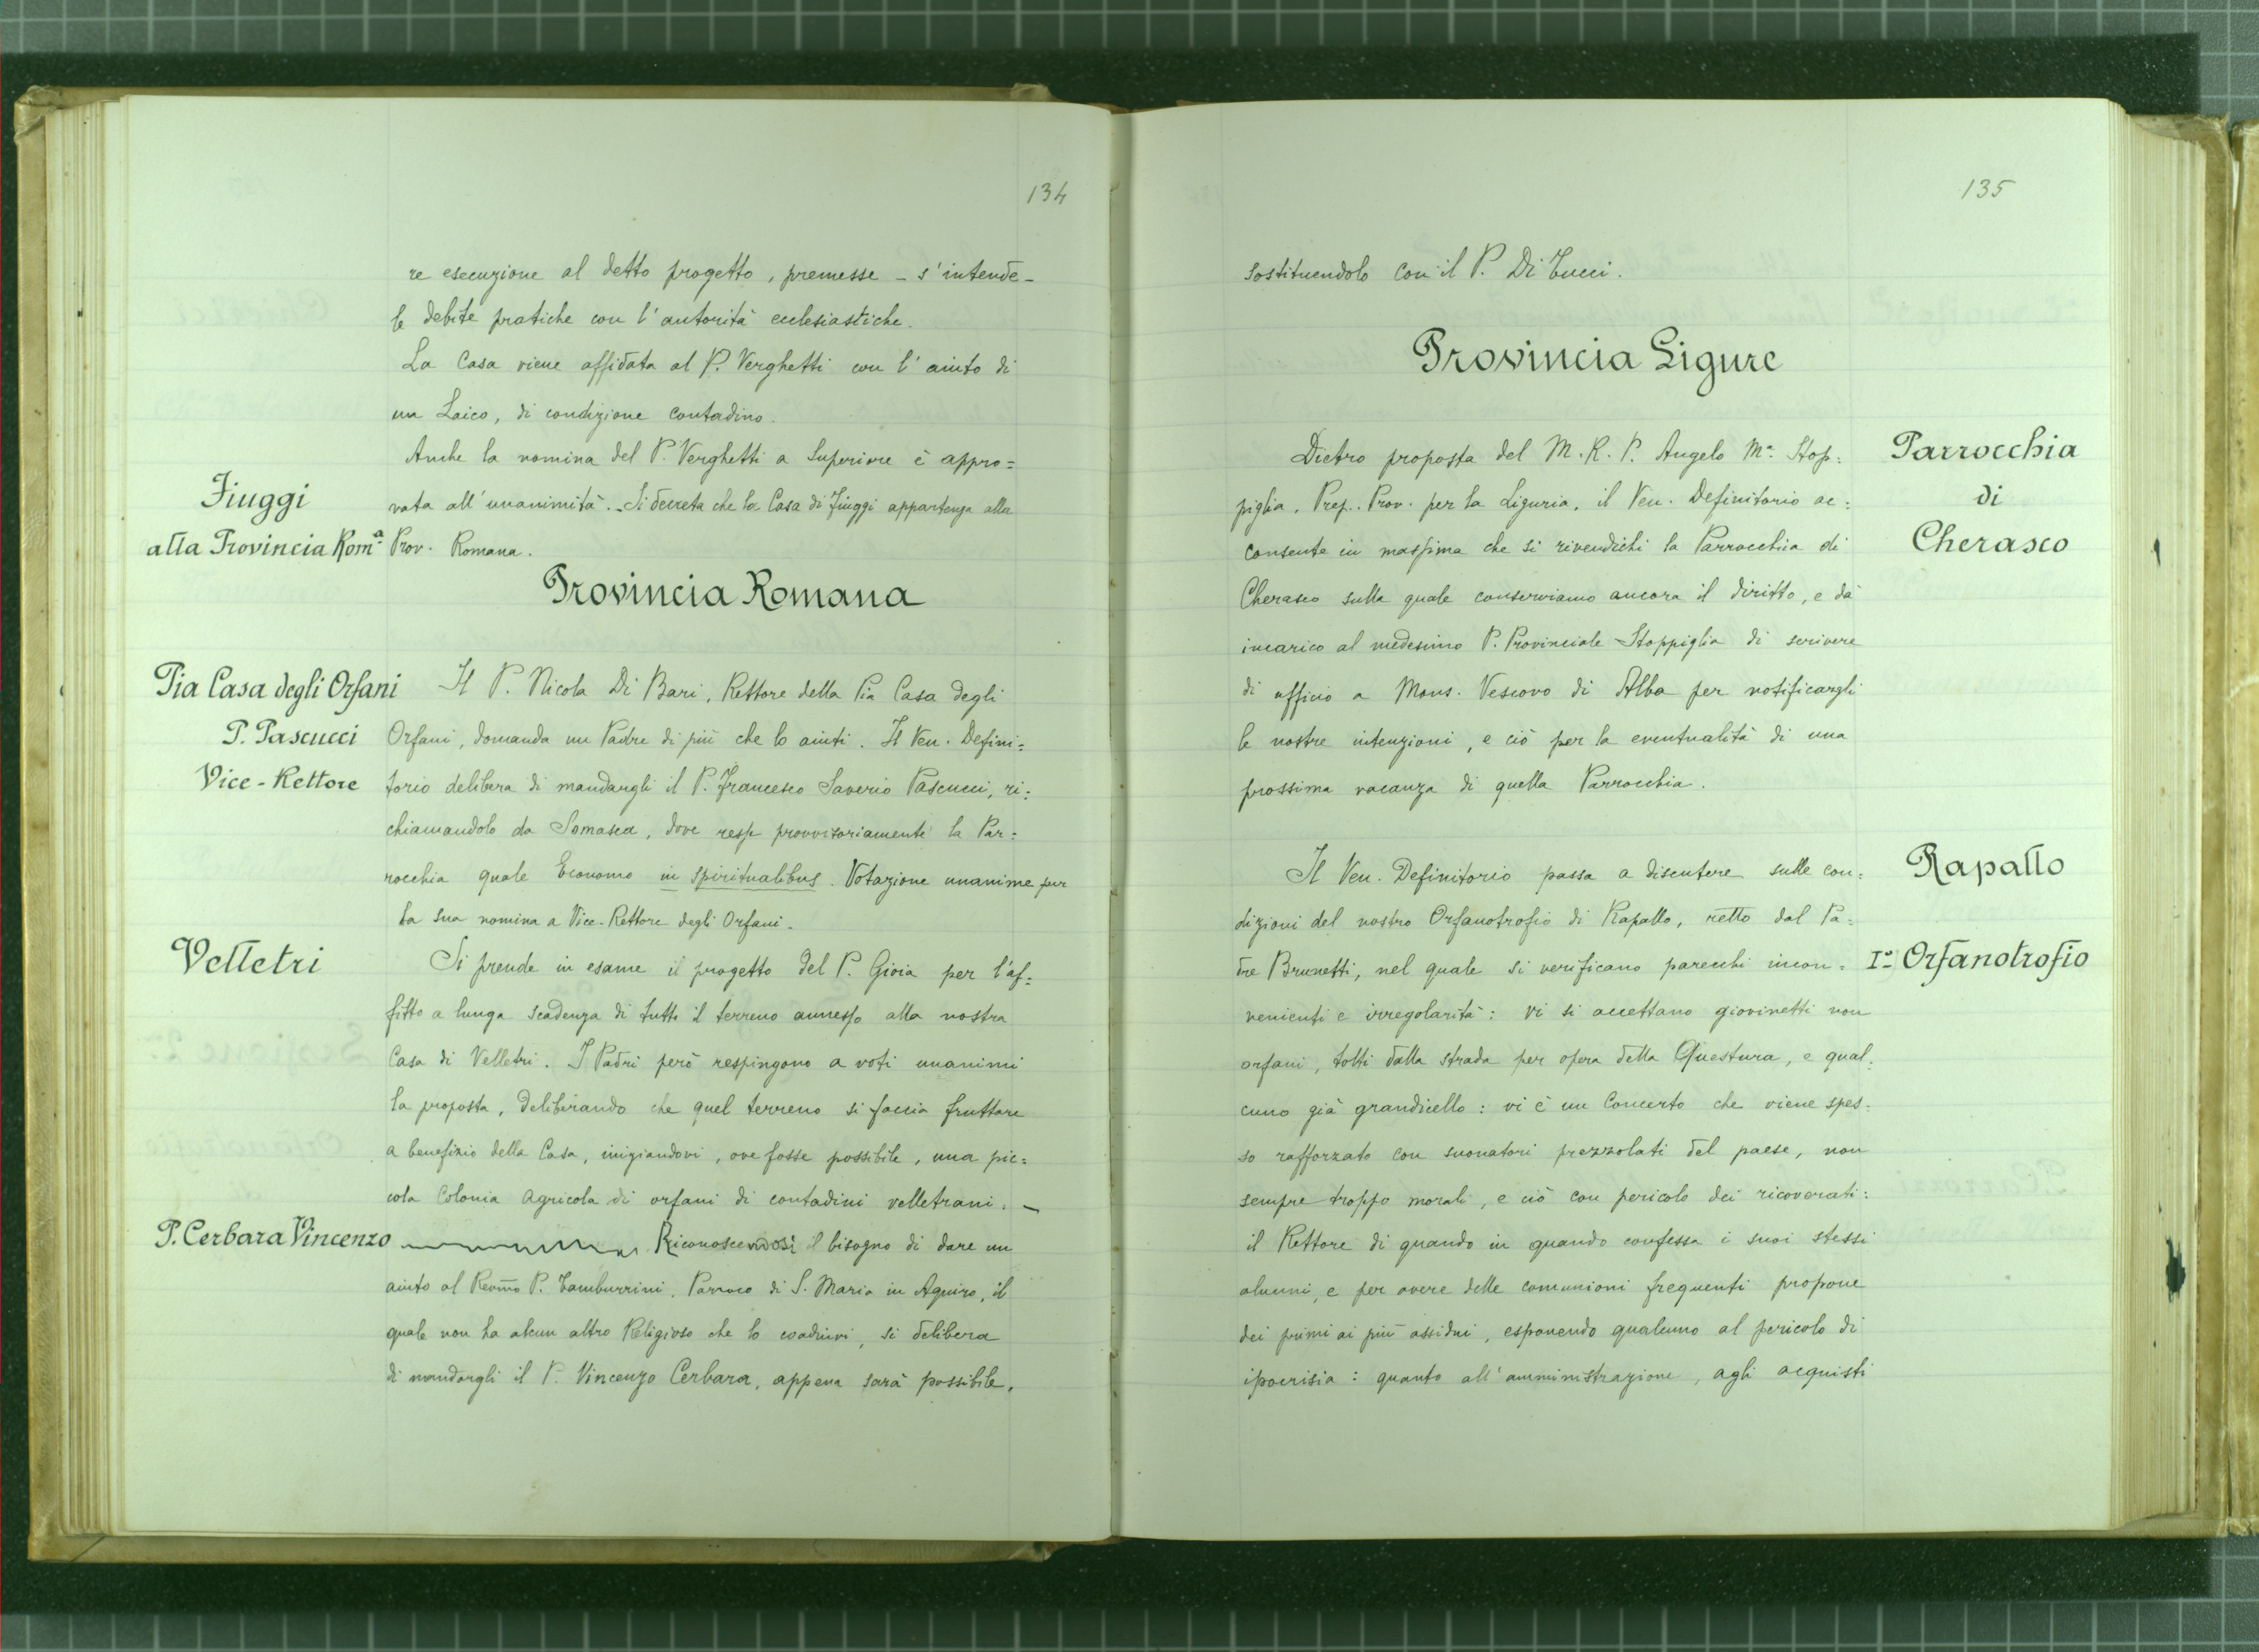 134
re esecuzione al detto progetto, premesse - s'intende -
le debite pratiche con l'autorità ecclesiastiche.
La Casa viene affidata al P. Verghetti con l'aiuto di
un Laico, di condizione contadino.
Anche la nomina del P. Verghetti a Superiore è appro=
Fiuggi
alla Provincia Romª
vata all'unanimità. - Si decreta che la Casa di Fiuggi appartenga alla
Prov. Romana.
Provincia Romana
Pia Casa degli Orfani
P. Pascucci
Vice-Rettore
Il P. Nicola Di Bari, Rettore della Pia Casa degli
Orfani, domanda un Padre di più che lo aiuti. Il Ven. Defini=
torio delibera di mandargli il P. Francesco Saverio Pascucci, ri=
chiamandolo da Somasca, dove resse provvisoriamente la Par=
rocchia quale Economo in spiritualibus. Votazione unanime per
la sua nomina a Vice-Rettore degli Orfani.
Velletri
Si prende in esame il progetto del P. Gioia per l'af=
fitto a lunga scadenza di tutto il terreno annesso alla nostra
Casa di Velletri. I Padri però respingono a voti unanimi
la proposta, deliberando che quel terreno si faccia fruttare
a benefizio della Casa, iniziandovi, ove fosse possibile, una pic=
cola Colonia Agricola di orfani di contadini velletrani. -
P. Cerbara Vincenzo
Riconoscendosi il bisogno di dare un
aiuto al Revmo P. Tamburrini, Parroco di S. Maria in Aquiro, il
quale non ha alcun altro Religioso che lo coadiuvi, si delibera
di mandargli il P. Vincenzo Cerbara, appena sarà possibile,
135
sostituendolo con il P. Di Tucci.
Provincia Ligure
Parrocchia
di
Cherasco
Dietro proposta del M. R. P. Angelo Mª Stop=
piglia, Prep. Prov. per la Liguria, il Ven. Definitorio ac=
consente in massima che si rivendichi la Parrocchia di
Cherasco sulla quale conserviamo ancora il diritto, e dà
incarico al medesimo P. Provinciale Stoppiglia di scrivere
di ufficio a Mons. Vescovo di Alba per notificargli
le nostre intenzioni, e ciò per la eventualità di una
prossima vacanza di quella Parrocchia.
Rapallo
Iº Orfanotrofio
Il Ven. Definitorio passa a discutere sulle con=
dizioni del nostro Orfanotrofio di Rapallo, retto dal Pa=
dre Brunetti, nel quale si verificano parecchi incon=
venienti e irregolarità: vi si accettano giovinetti non
orfani, tolti dalla strada per opera della Questura, e qual=
cuno già grandicello: vi è un Concerto che viene spes=
so rafforzato con suonatori prezzolati del paese, non
sempre troppo morali, e ciò con pericolo dei ricoverati:
il Rettore di quando in quando confessa i suoi stessi
alunni, e per avere delle comunioni frequenti propone
dei premi ai più assidui, esponendo qualcuno al pericolo di
ipocrisia: quanto all'amministrazione, agli acquisti